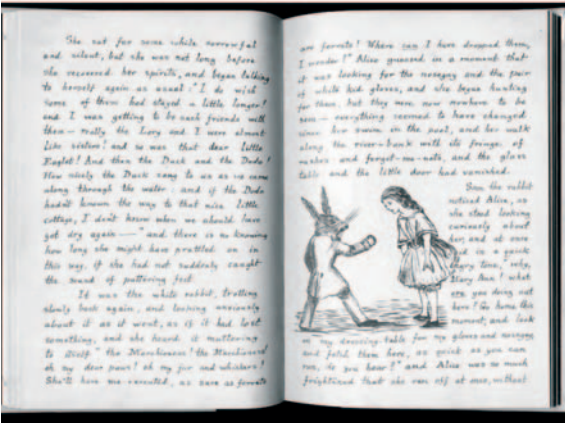 She sat for some while sorrowful
and silent, but she was not long before
she recovered her spirits, and began talking
to herself again as usual: "I do wish
some of them had stayed a little longer!
and I was getting to be such friends with
them - really the Lory and I were almost
like sisters! and so was that dear little
Eaglet! And then the Duck and the Dodo!
How nicely the Duck sang to us as we came
along through the water: and if the Dodo
hadn't known the way to that nice little
cottage, I don't know when we should have
got dry again —" and there is no knowing
how long she might have prattled on in
this way, if she had not suddenly caught
the sound of pattering feet.
It was the white rabbit, trotting
slowly back again, and looking anxiously
about it as it went, as if it had lost
something, and she heard it muttering
to itself "the Marchioness! the Marchioness!
oh my dear paws! oh my fur and whiskers!
She'll have me executed, as sure as ferrets
are ferrets! Where can I have dropped them,
I wonder?" Alice guessed in a moment that
it was looking for the nosegay and the pair
of white kid gloves, and she began hunting
for them, but they were now nowhere to be
seen - everything seemed to have changed
since her swim in the pool, and her walk
along the river-bank with its fringe of
rushes and forget-me-nots, and the glass
table and the little door had vanished.
Soon the rabbit
noticed Alice, as
she stood looking
curiously about
her, and at once
said in a quick
angry tone, "why,
Mary Ann! what
are you doing out
here? Go home this
moment, and look
on my dressing-table for my gloves and nosegay,
and fetch them here, as quick as you can
run, do you hear?" and Alice was so much
frightened that she ran off at once, without